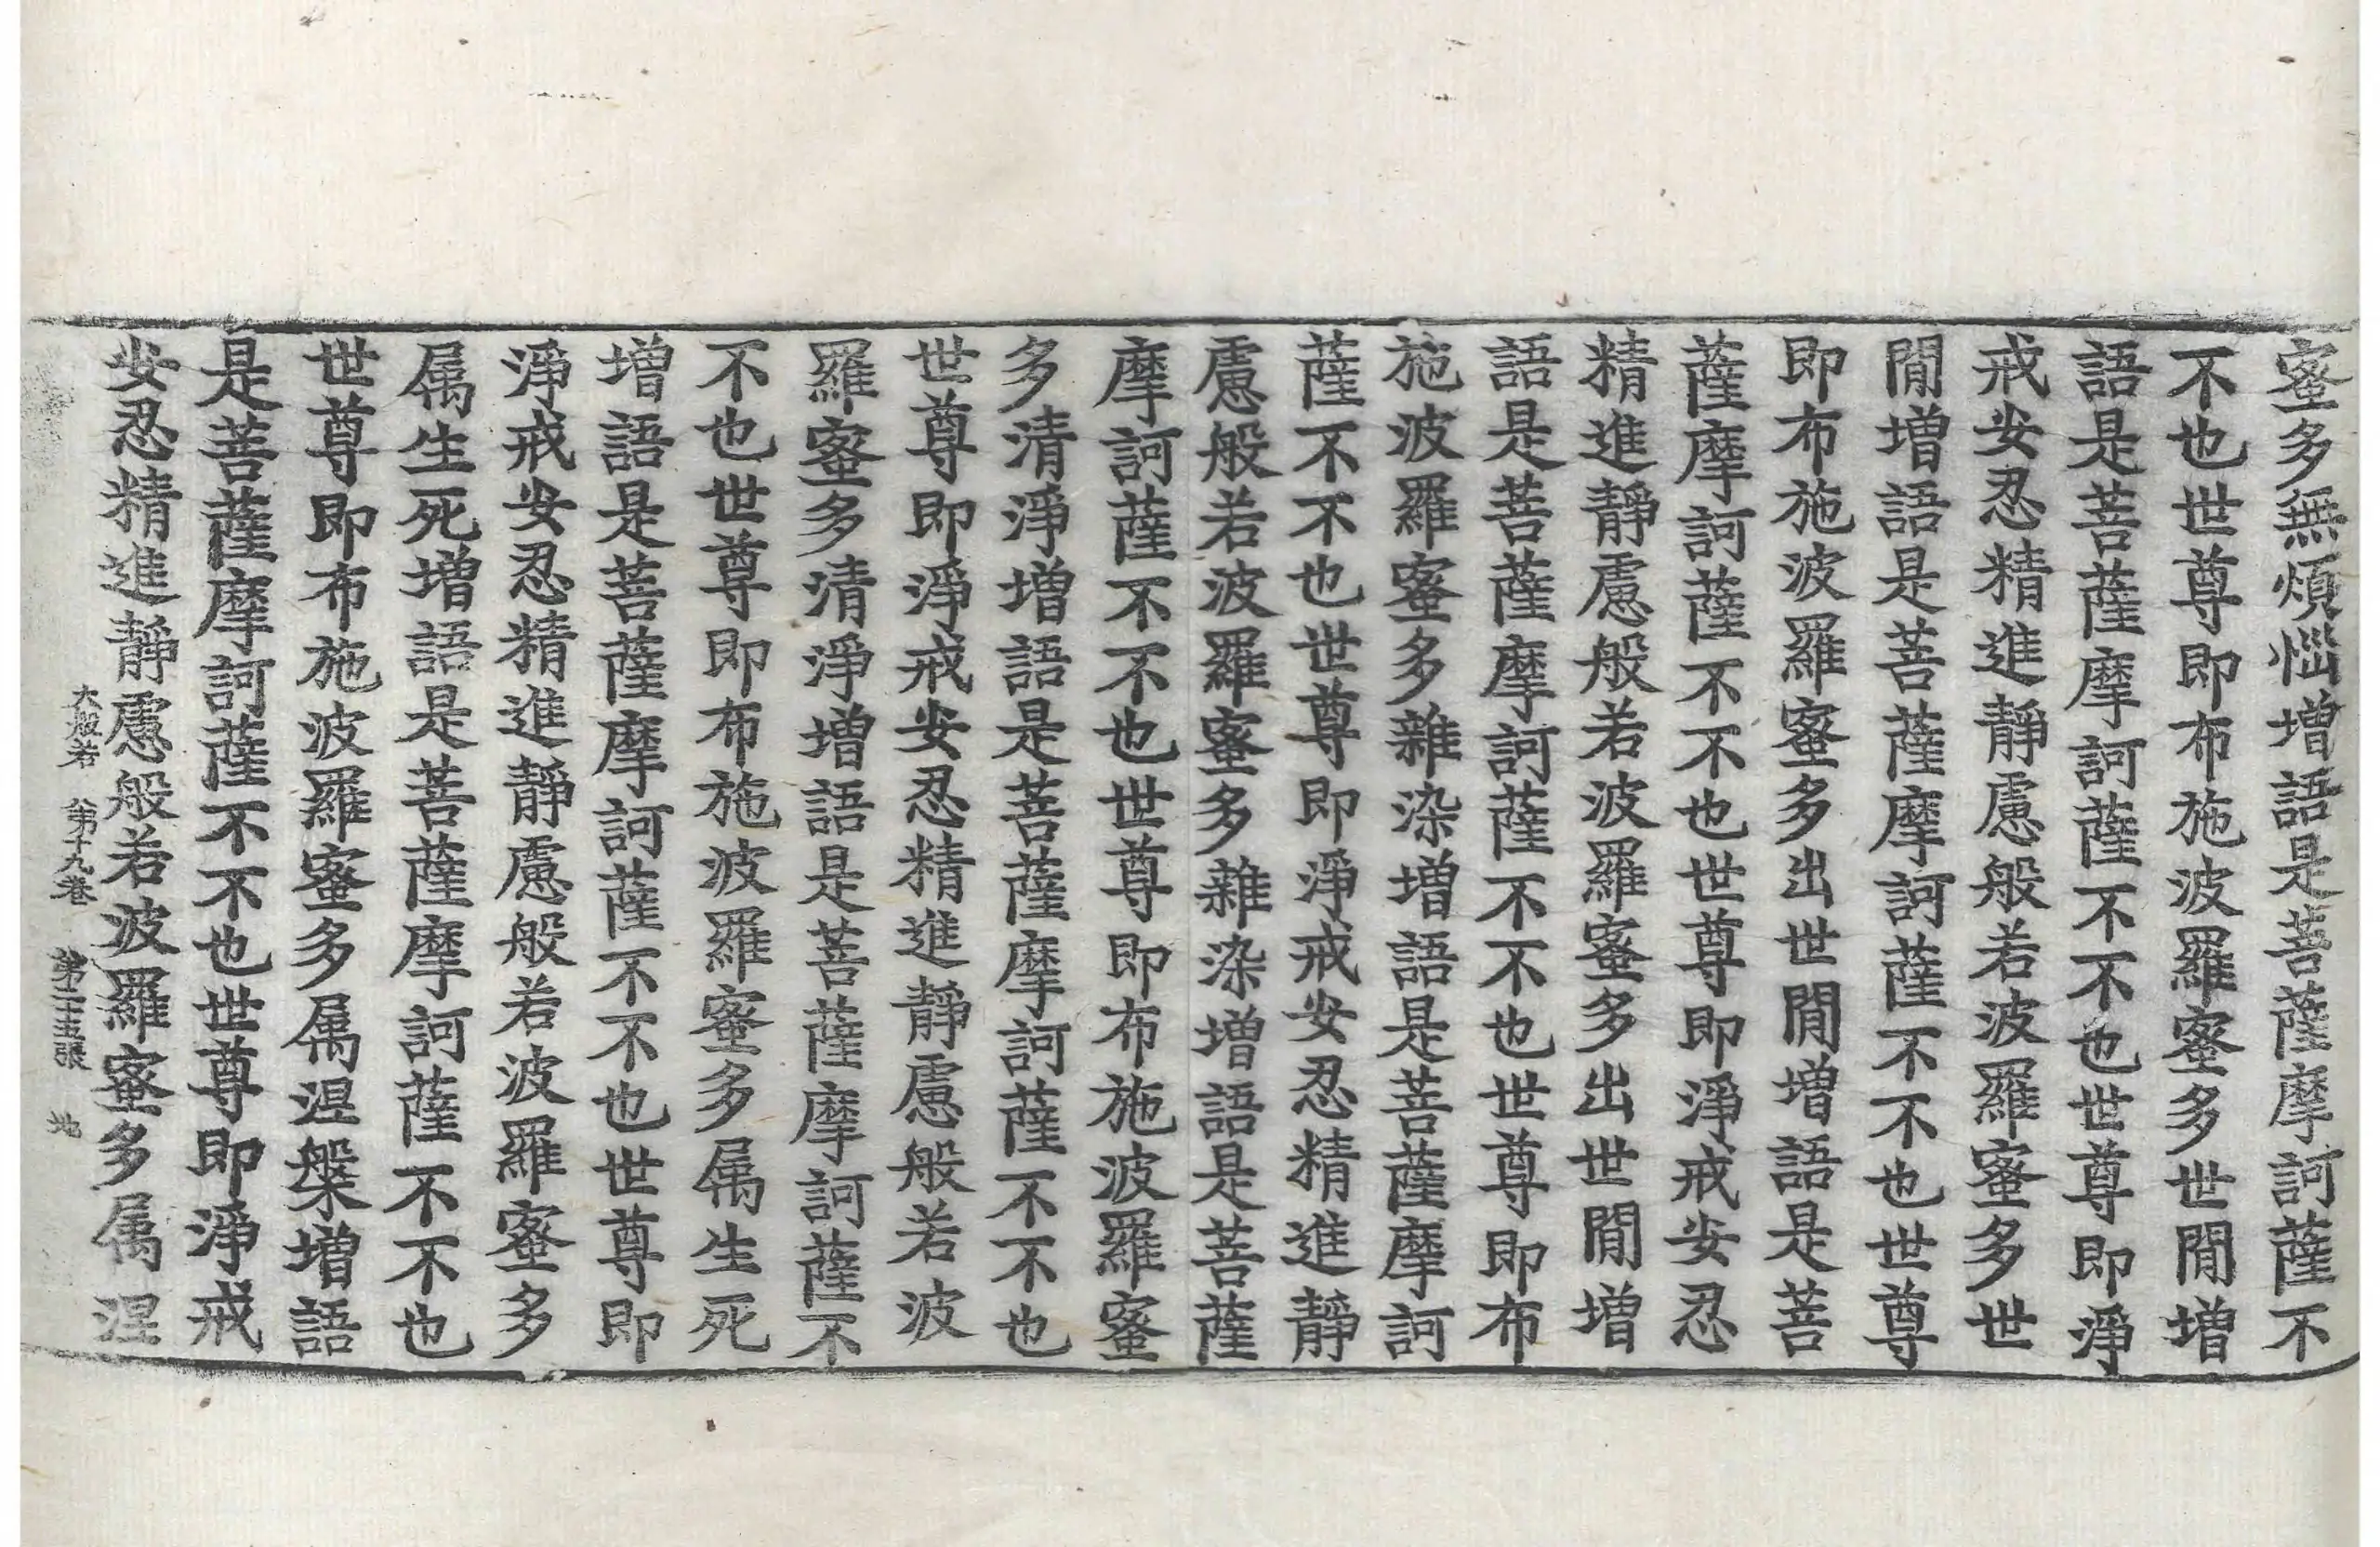 蜜多無煩惱增語是菩薩摩訶薩不
不也世尊即布施波羅蜜多世閒增
語是菩薩摩訶薩不不也世尊即淨
戒安忍精進靜慮般若波羅蜜多世
閒增語是菩薩摩訶薩不不也世尊
即布施波羅蜜多出世閒增語是菩
薩摩訶薩不不也世尊即淨戒安忍
精進靜慮般若波羅蜜多出世閒增
語是菩薩摩訶薩不不也世尊即布
施波羅蜜多雜染增語是菩薩摩訶
薩不不也世尊即淨戒安忍精進靜
慮般若波羅蜜多雜染增語是菩薩
摩訶薩不不也世尊即布施波羅蜜
多清淨增語是菩薩摩訶薩不不也
世尊即淨戒安忍精進靜慮般若波
羅蜜多清淨增語是菩薩摩訶薩不
不也世尊即布施波羅蜜多属生死
增語是菩薩摩訶薩不不也世尊即
淨戒安忍精進靜慮般若波羅蜜多
属生死增語是菩薩摩訶薩不不也
世尊即布施波羅蜜多属涅槃增語
是菩薩摩訶薩不不也世尊即淨戒
安忍精進靜慮般若波羅蜜多属涅
大般若 第十九卷 第二十五張 地